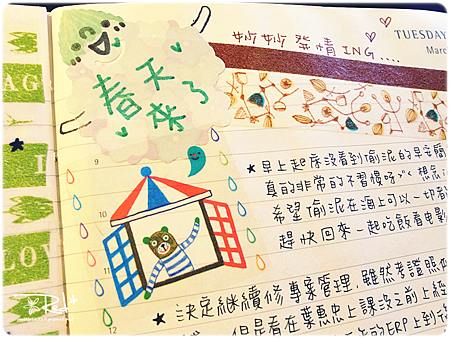 妙妙發情ING....
TUESDAY
Marc
春天
來了
9
★早上起床沒看到偷泥的早安簡
真的非常的不習慣呀
希望偷泥在海上可以一切
趕快回來一起吃飯看電影
11
★決定繼續修專案管理,雖然考證照
12
但是看在葉惠忠上課沒之前上經
的ERP上到